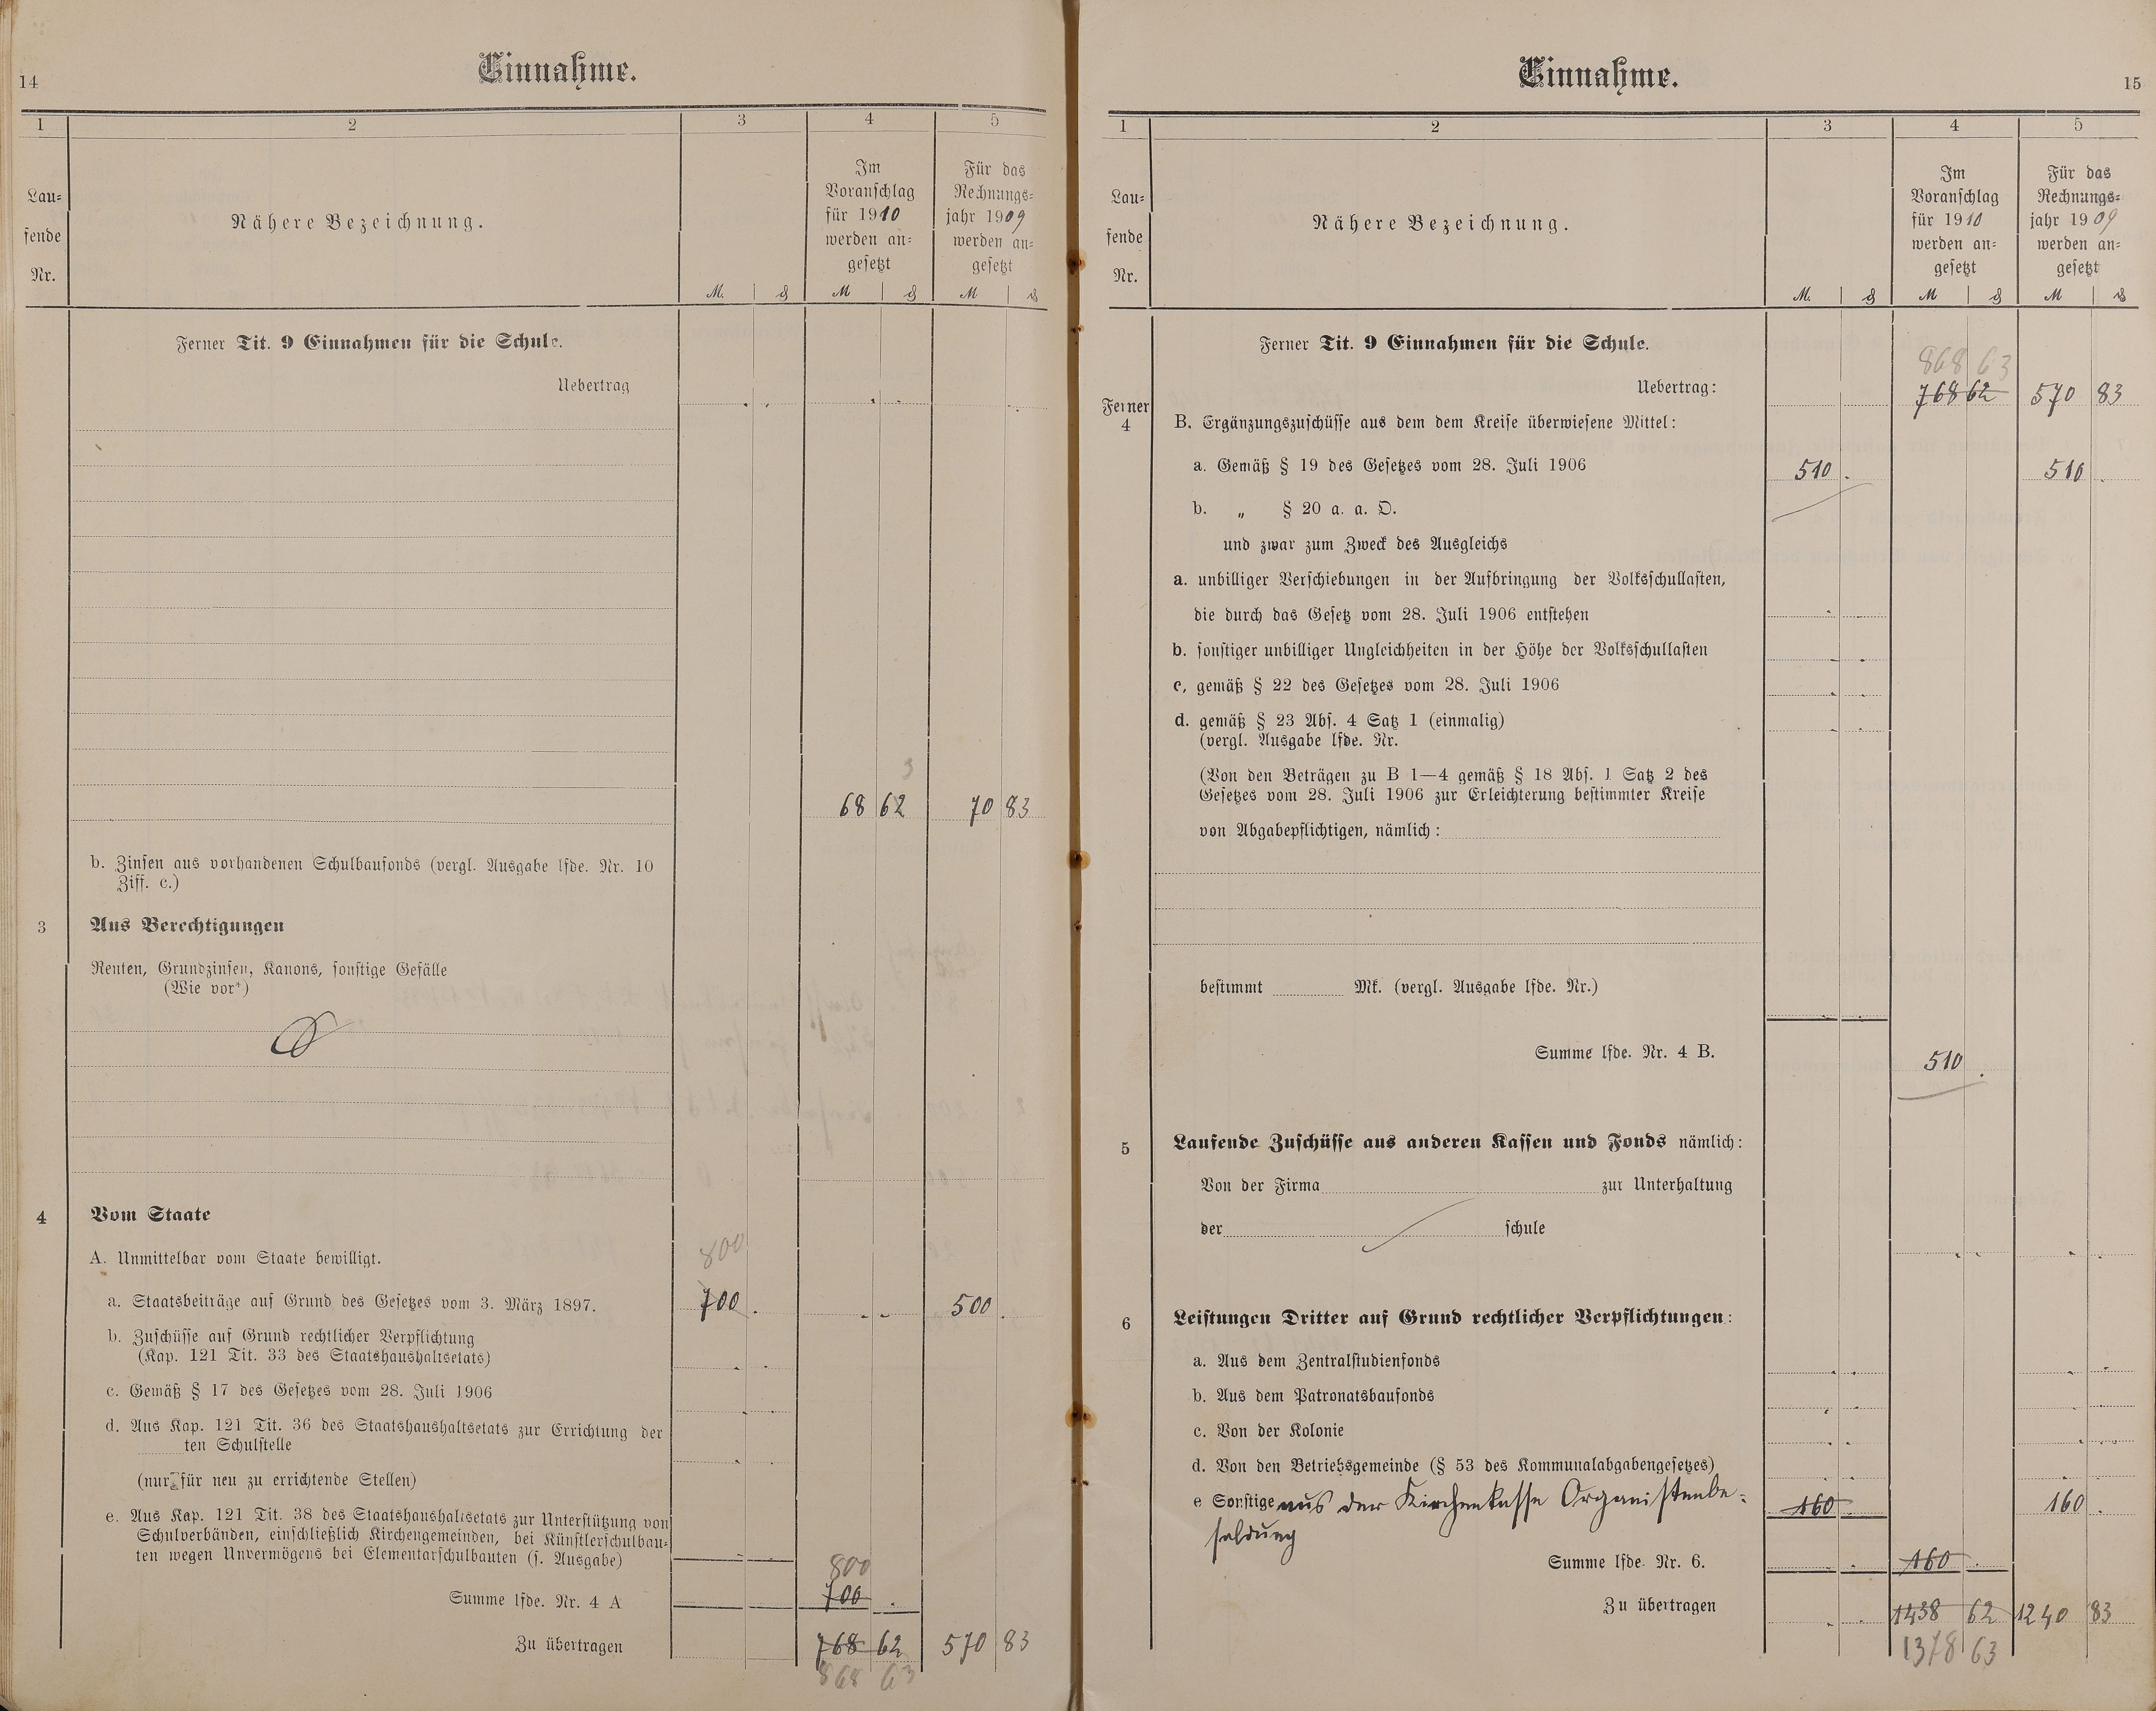 14
Einnahme.
1 2 3 4 5
Lau=
fende
Nr.
Nähere Bezeichnung.
Im
Voranschlag
für 1910
werden an=
gesetzt
Für das
Rechnungs=
jahr 1909
werden an=
gesetzt
M. ₰ M ₰ M ₰
Ferner Tit. 9 Einnahmen für die Schule.
Uebertrag
3
68 62 70 83
b. Zinsen aus vorhandenen Schulbaufonds (vergl. Ausgabe lfde. Nr. 10
Ziff. c.)
3 Aus Berechtigungen
Renten, Grundzinsen, Kanons, sonstige Gefälle
(Wie vor*)
4 Vom Staate
A. Unmittelbar vom Staate bewilligt.
800
a. Staatsbeiträge auf Grund des Gesetzes vom 3. März 1897. 700 . 500 .
b. Zuschüsse auf Grund rechtlicher Verpflichtung
(Kap. 121 Tit. 33 des Staatshaushaltsetats)
c. Gemäß § 17 des Gesetzes vom 28. Juli 1906
d. Aus Kap. 121 Tit. 36 des Staatshaushaltsetats zur Errichtung der
ten Schulstelle
(nur für neu zu errichtende Stellen)
e. Aus Kap. 121 Tit. 38 des Staatshaushaltsetats zur Unterstützung von
Schulverbänden, einschließlich Kirchengemeinden, bei Künstlerschulbau=
ten wegen Unvermögens bei Elementarschulbauten (s. Ausgabe)
800
Summe lfde. Nr. 4 A 700 .
Zu übertragen 768 62 570 83
868 63
Einnahme.
15
1 2 3 4 5
Lau=
fende
Nr.
Nähere Bezeichnung.
Im
Voranschlag
für 1910
werden an=
gesetzt
Für das
Rechnungs=
jahr 1909
werden an=
gesetzt
M. ₰ M ₰ M ₰
Ferner Tit. 9 Einnahmen für die Schule.
868 63
Uebertrag: 768 62 570 83
Ferner
4 B. Ergänzungszuschüsse aus dem dem Kreise überwiesene Mittel:
a. Gemäß § 19 des Gesetzes vom 28. Juli 1906 510 . 510 .
b. „ § 20 a. a. O.
und zwar zum Zweck des Ausgleichs
a. unbilliger Verschiebungen in der Aufbringung der Volksschullasten,
die durch das Gesetz vom 28. Juli 1906 entstehen
b. sonstiger unbilliger Ungleichheiten in der Höhe der Volksschullasten
c, gemäß § 22 des Gesetzes vom 28. Juli 1906
d. gemäß § 23 Abs. 4 Satz 1 (einmalig)
(vergl. Ausgabe lfde. Nr.
(Von den Beträgen zu B 1—4 gemäß § 18 Abs. 1 Satz 2 des
Gesetzes vom 28. Juli 1906 zur Erleichterung bestimmter Kreise
von Abgabepflichtigen, nämlich:
bestimmt Mk. (vergl. Ausgabe lfde. Nr.)
Summe lfde. Nr. 4 B. 510 .
5 Laufende Zuschüsse aus anderen Kassen und Fonds nämlich:
Von der Firma zur Unterhaltung
der schule
6 Leistungen Dritter auf Grund rechtlicher Verpflichtungen:
a. Aus dem Zentralstudienfonds
b. Aus dem Patronatsbaufonds
c. Von der Kolonie
d. Von den Betriebsgemeinde (§ 53 des Kommunalabgabengesetzes)
e Sonstige aus der Kirchenkasse Organistenbe= 160 . 160 .
soldung
Summe lfde. Nr. 6. 160 .
Zu übertragen 1438 62 1240 83
1378 63